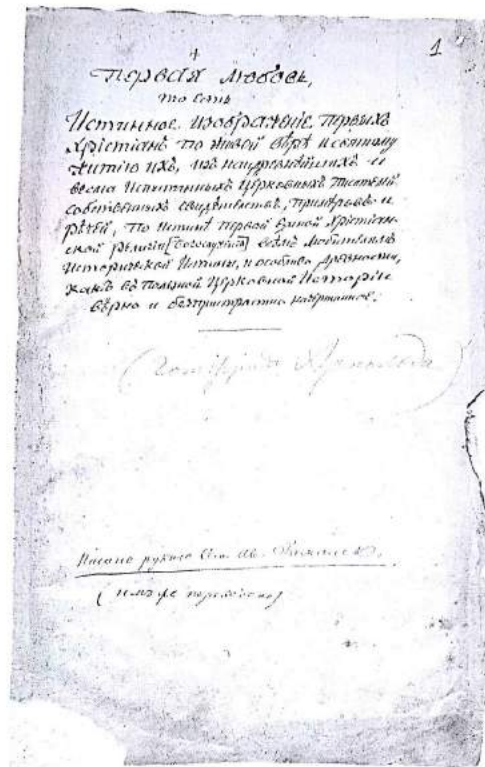 1
Первая Любовь,
то есть
Истинное изображенїе первыхъ
Хрїстїанъ по живой вѣрѣ и святому
житїю ихъ, изъ наидревнѣйшихъ и
весьма Церковныхъ Писателей
собственныхъ свидѣтельствъ, примѣровъ и
рѣчей, по истинѣ первой единой Хрїстїан-
ской религїи [Богослуженїя] всѣмъ любителямъ
Исторической Истины, и особливо древности,
какъ въ полезной Церковной Исторїи
вѣрно и безпристрастно начертанное.
(Готфрида Арнольда)
Писано рукою
(имъ же переведено)